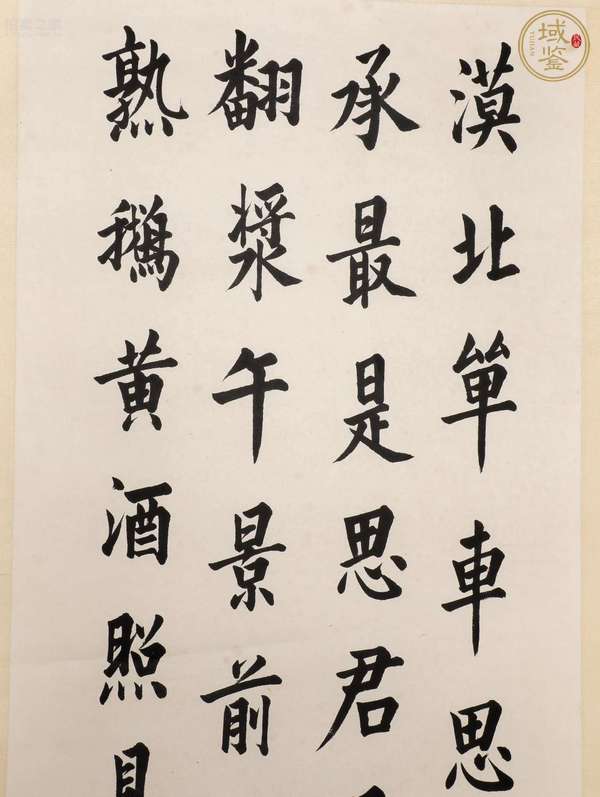 漠北單車思
承最是思君
翻漿午景前
熟鵝黃酒照
域鑒
YUJIAN